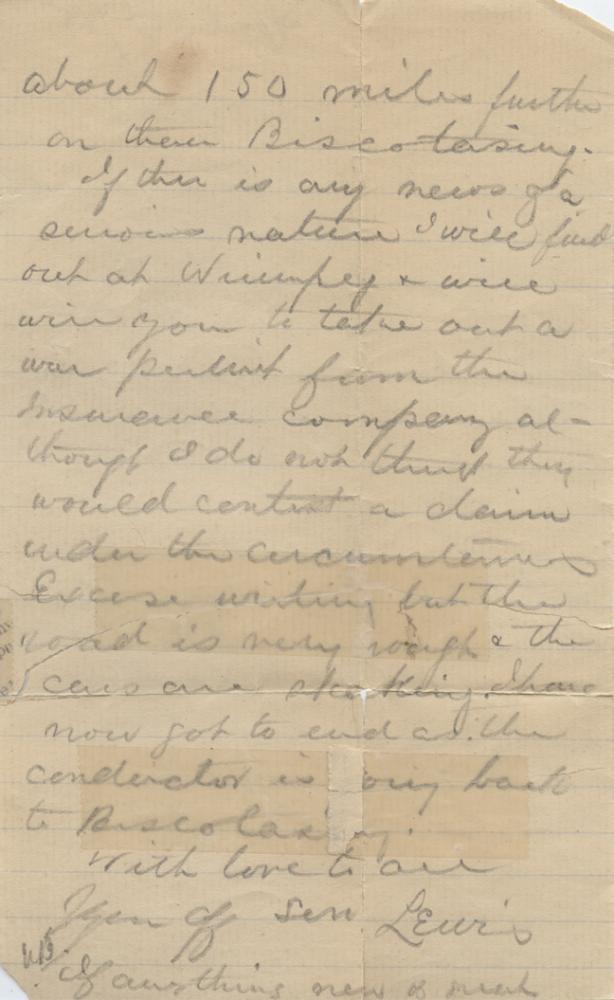 about 150 miles further
on than Biscotasing.
If there is any news of a
serious nature I will find
out at Winnipeg & will
wire you to take out a
war permit from the
Insurance company al-
though I do not think they
would contest a claim
under the circumstances
Excuse writing but the
road is very rough & the
cars are shaking. I have
now got to end as the
conductor is going back
to Biscotasing.
With love to all
Your aff son Lewis
NB. If anything new &